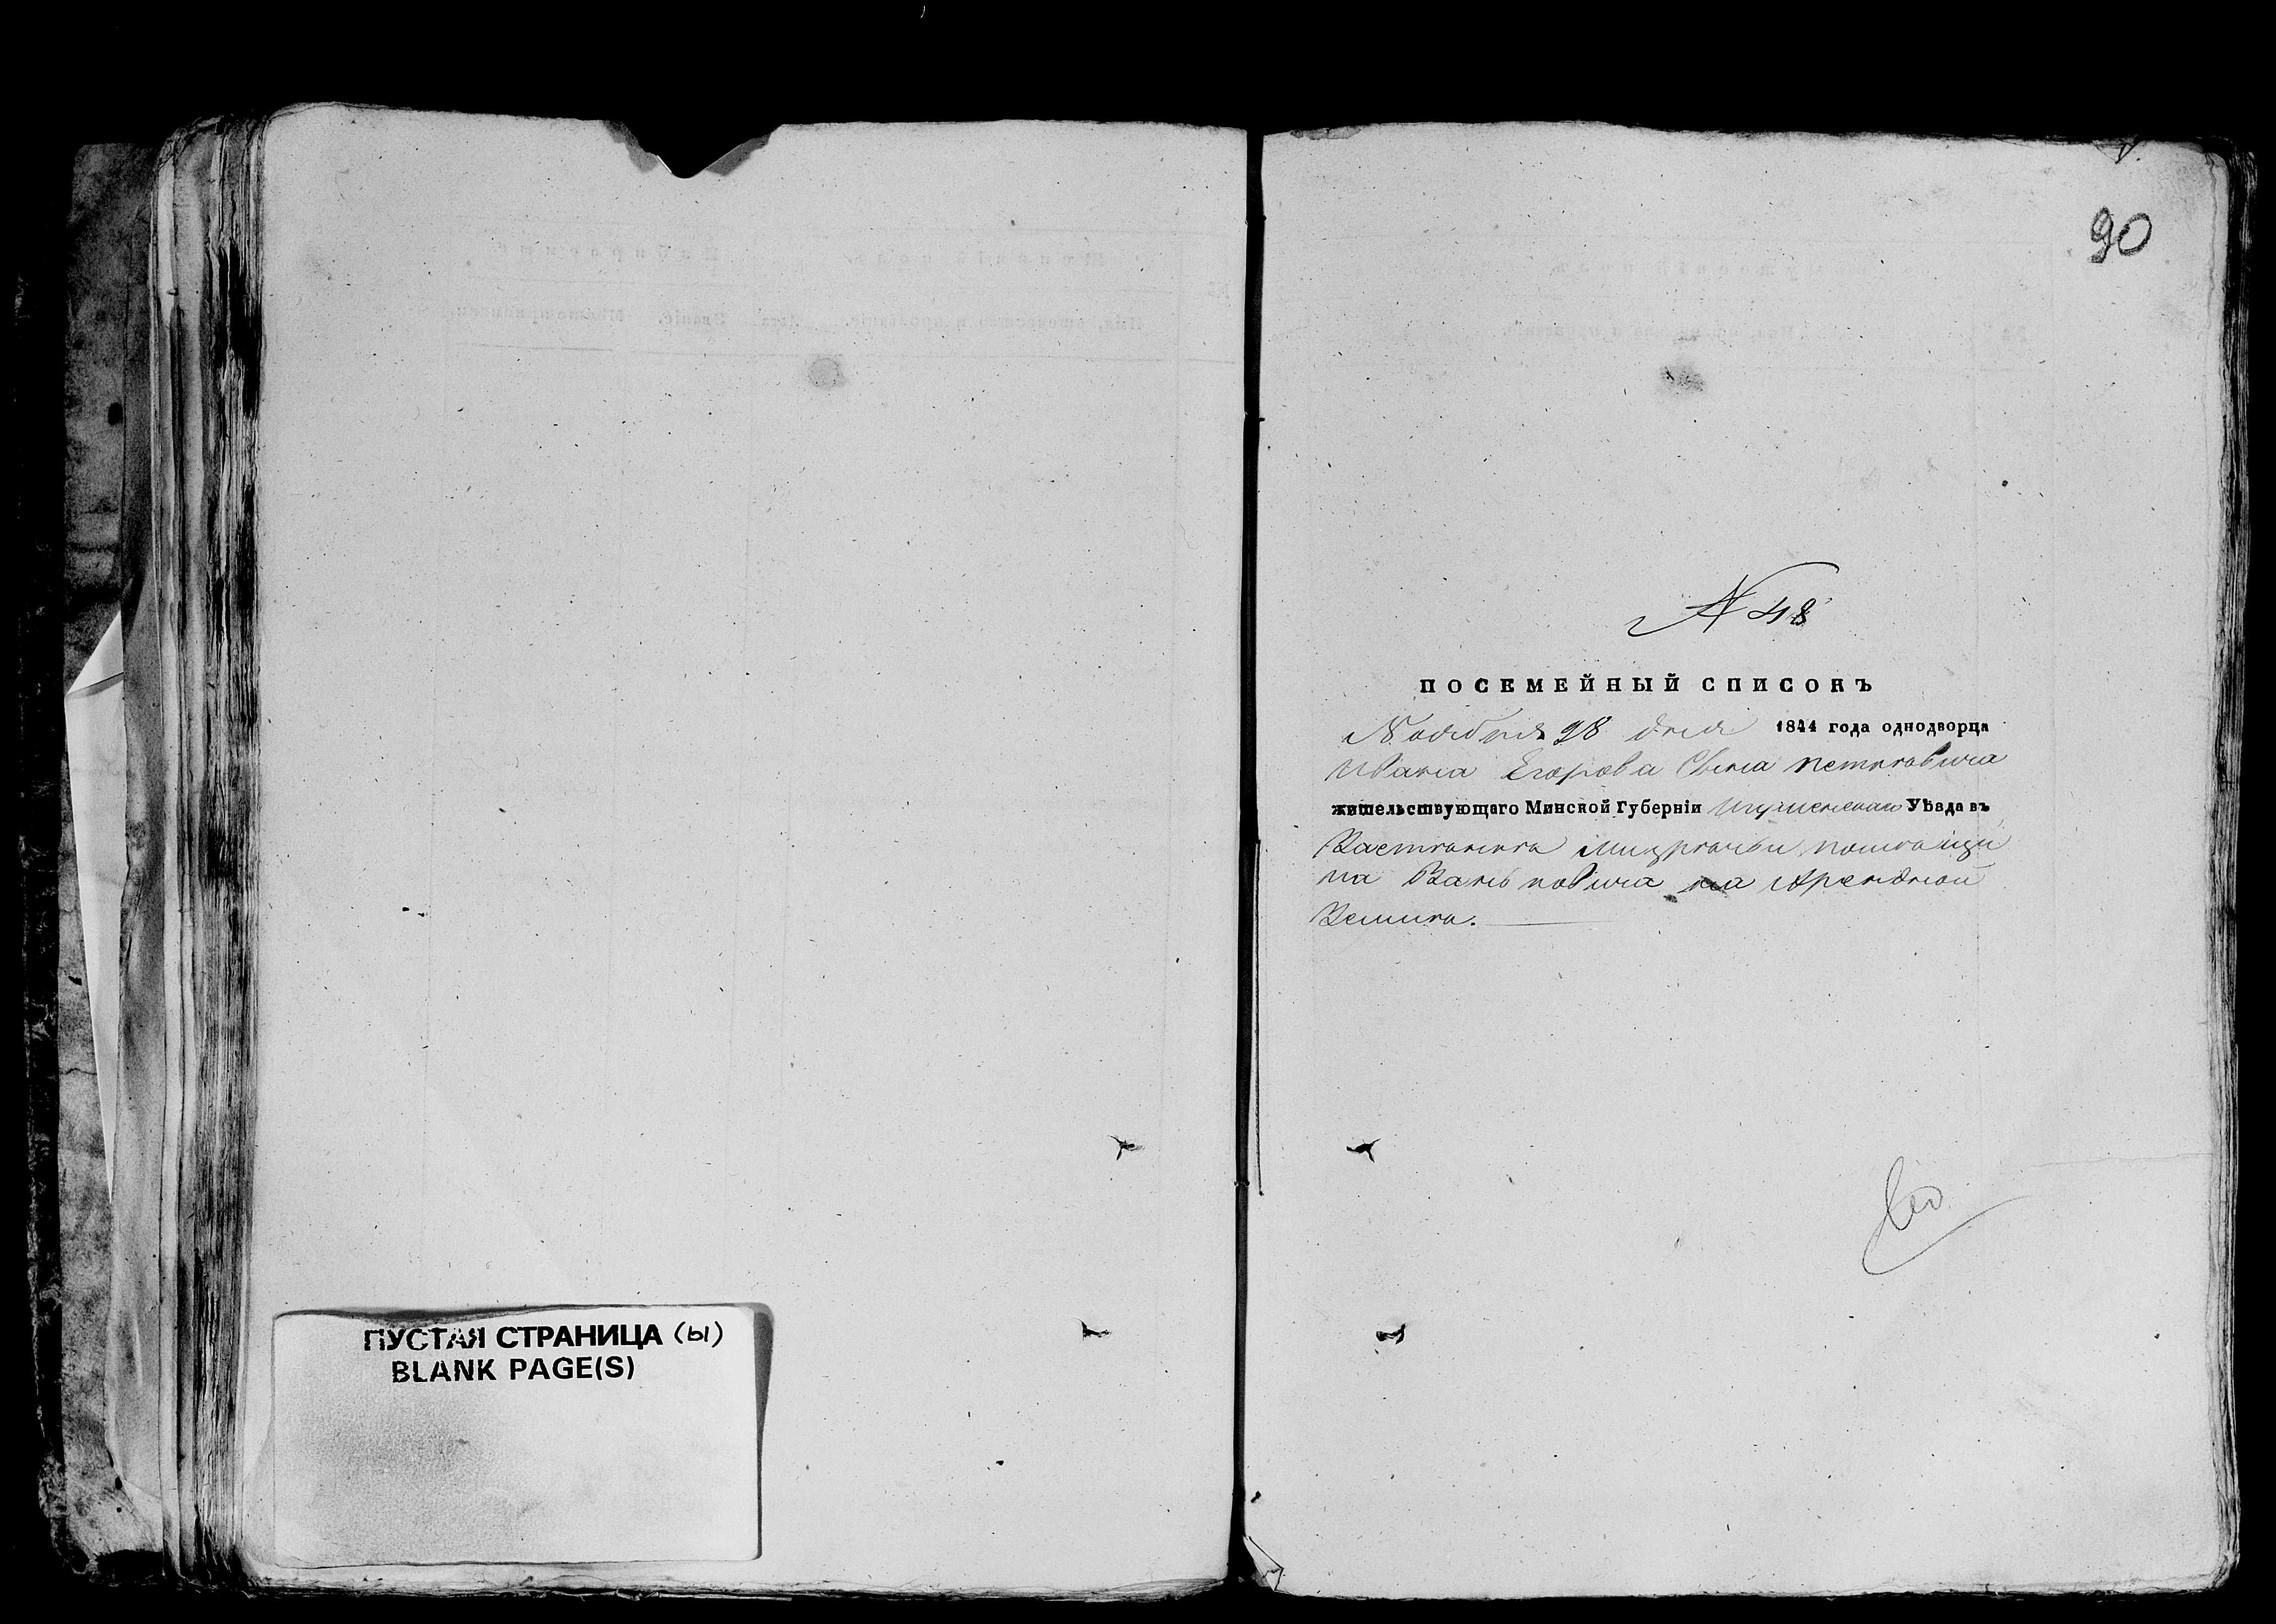 ПУСТАЯ СТРАНИЦА (Ы)
BLANK PAGE(S)
90
N 48
ПОСЕМЕЙНЫЙ СПИСОКЪ
Ноября 28 дня 1844 года однодворца
Ивана Егорова Сына Петковича
жительствующаго Минской Губерніи Игуменскаго Уѣзда въ
на Арендной
Земли.